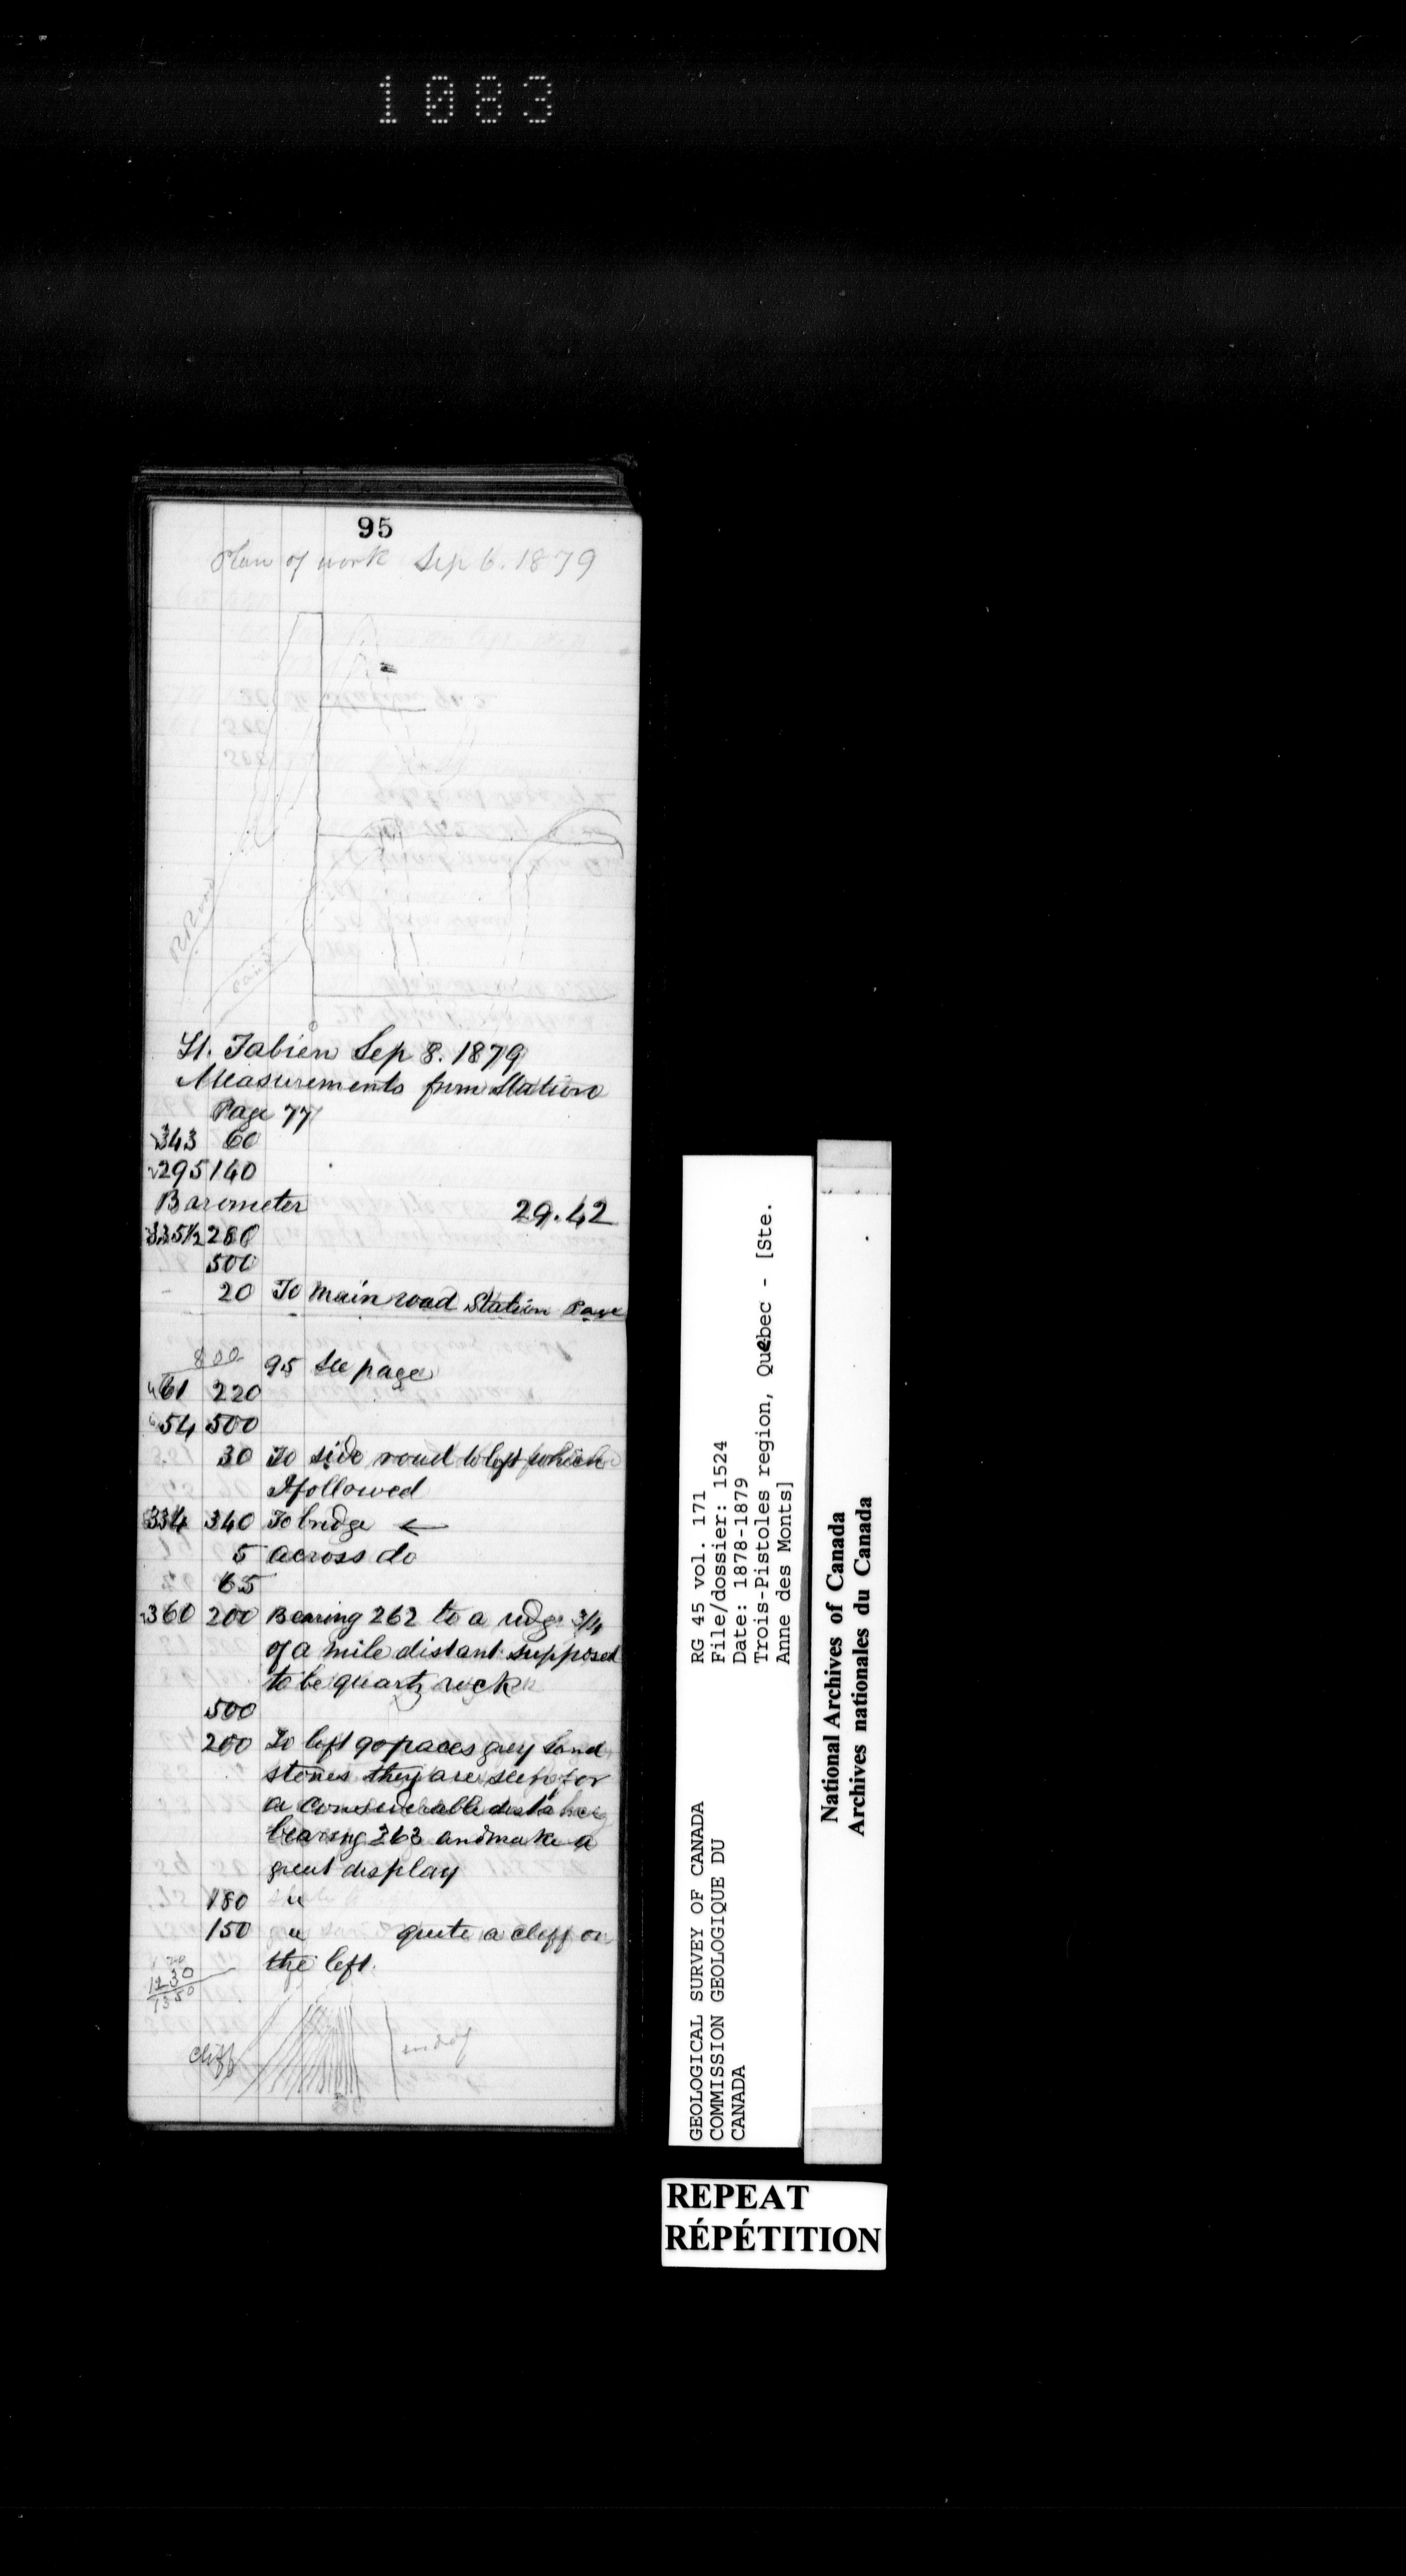 1083
95
Plan of work Sep 6. 1879
RR
St. Fabien Sep 8. 1879
Measurements from Station
Page 77
343 60
295 140
Barometer 29.42
335½ 280
500
20 To Main road Station Page
800 95 See page
61 220
54 500
30 To side road to left which
I followed
334 340 To bridge ←
5 across do
65
360 200 Bearing 262 to a ridge 3/4
of a mile distant supposed
to be quartz rock
500
200 To left 90 paces grey sand
stones they are seen for
a considerable distance
bearing 263 and make a
great display
180 "
150 " quite a cliff on
the left.
1230
1350
cliff
GEOLOGICAL SURVEY OF CANADA
COMMISSION GEOLOGIQUE DU
CANADA
RG 45 vol. 171
File/dossier: 1524
Date: 1878-1879
Trois-Pistoles region, Québec - [Ste.
Anne des Monts]
National Archives of Canada
Archives nationales du Canada
REPEAT
RÉPÉTITION